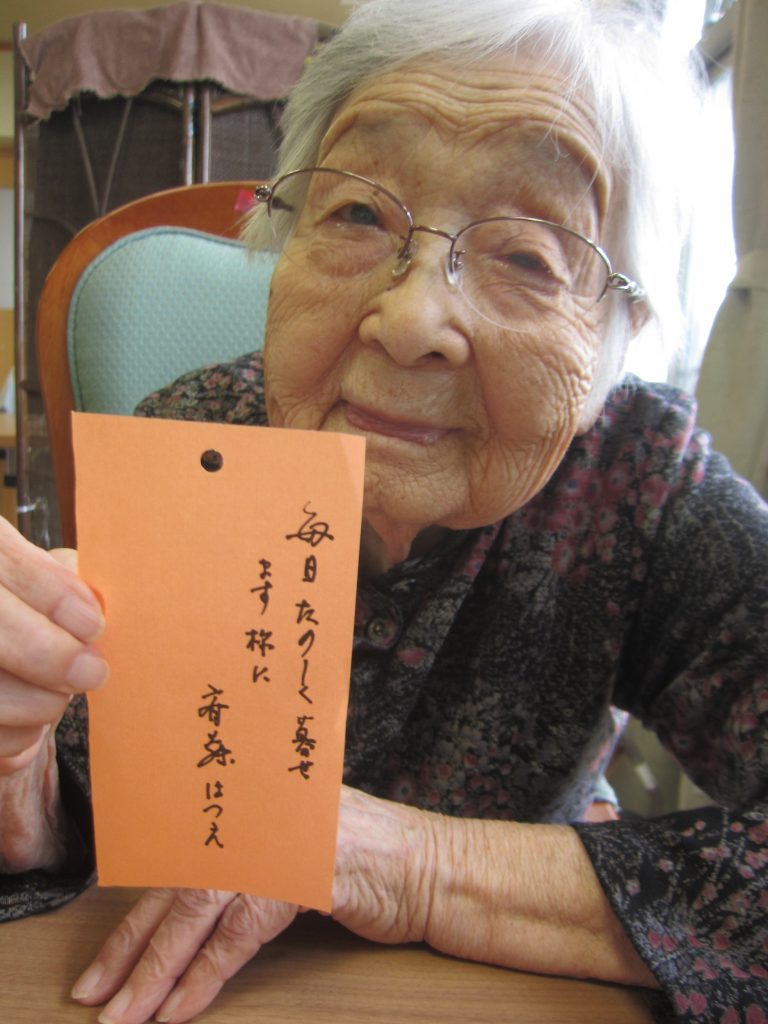 毎日たのしく暮せ
ます様に
斉藤はつえ